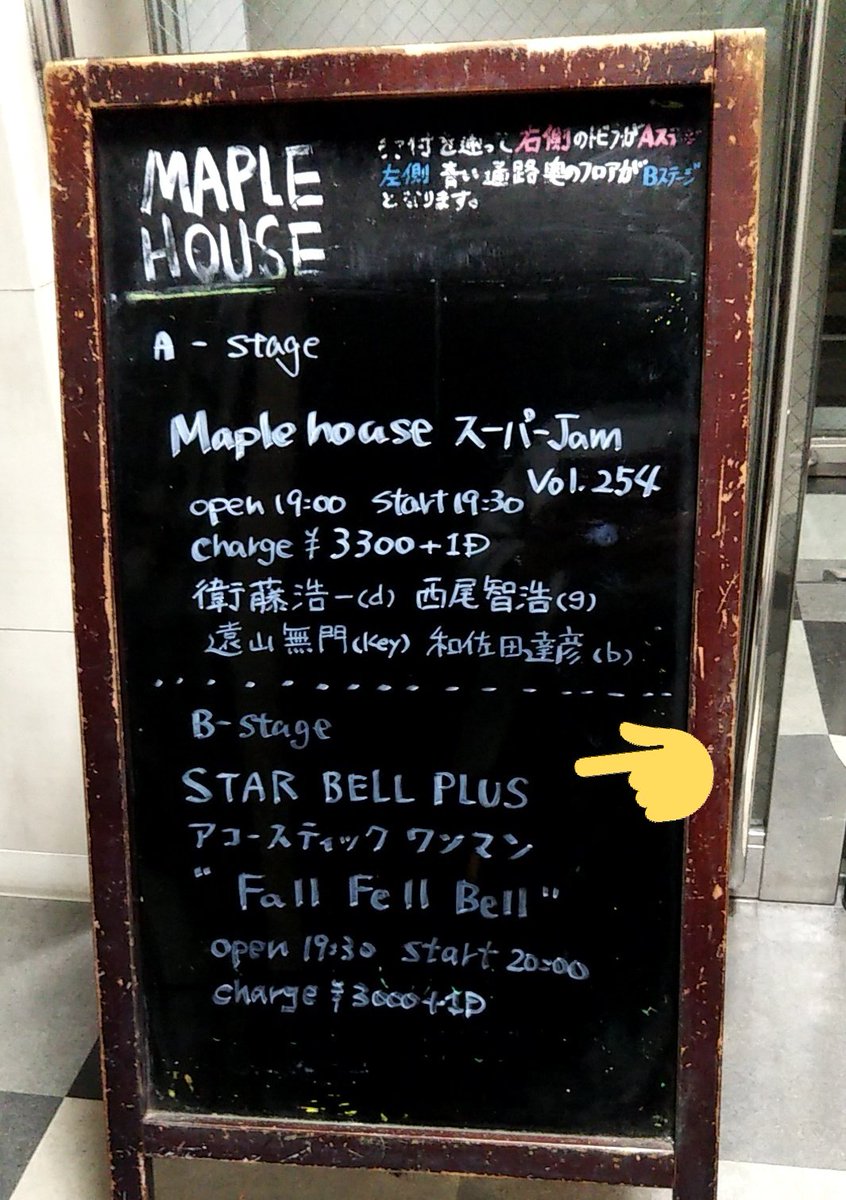 MAPLE
HOUSE
受付を通って右側のトビラがAステージ
左側 青い通路奥のフロアがBステージ
となります。
A - stage
Maple house スーパーJam
Vol. 254
open 19:00 start 19:30
charge ¥3300+1D
衛藤浩一(d) 西尾智浩(g)
遠山無門(key) 和佐田達彦(b)
B-stage
STAR BELL PLUS
アコースティック ワンマン
"Fall Fell Bell"
open 19:30 start 20:00
charge ¥3000+1D